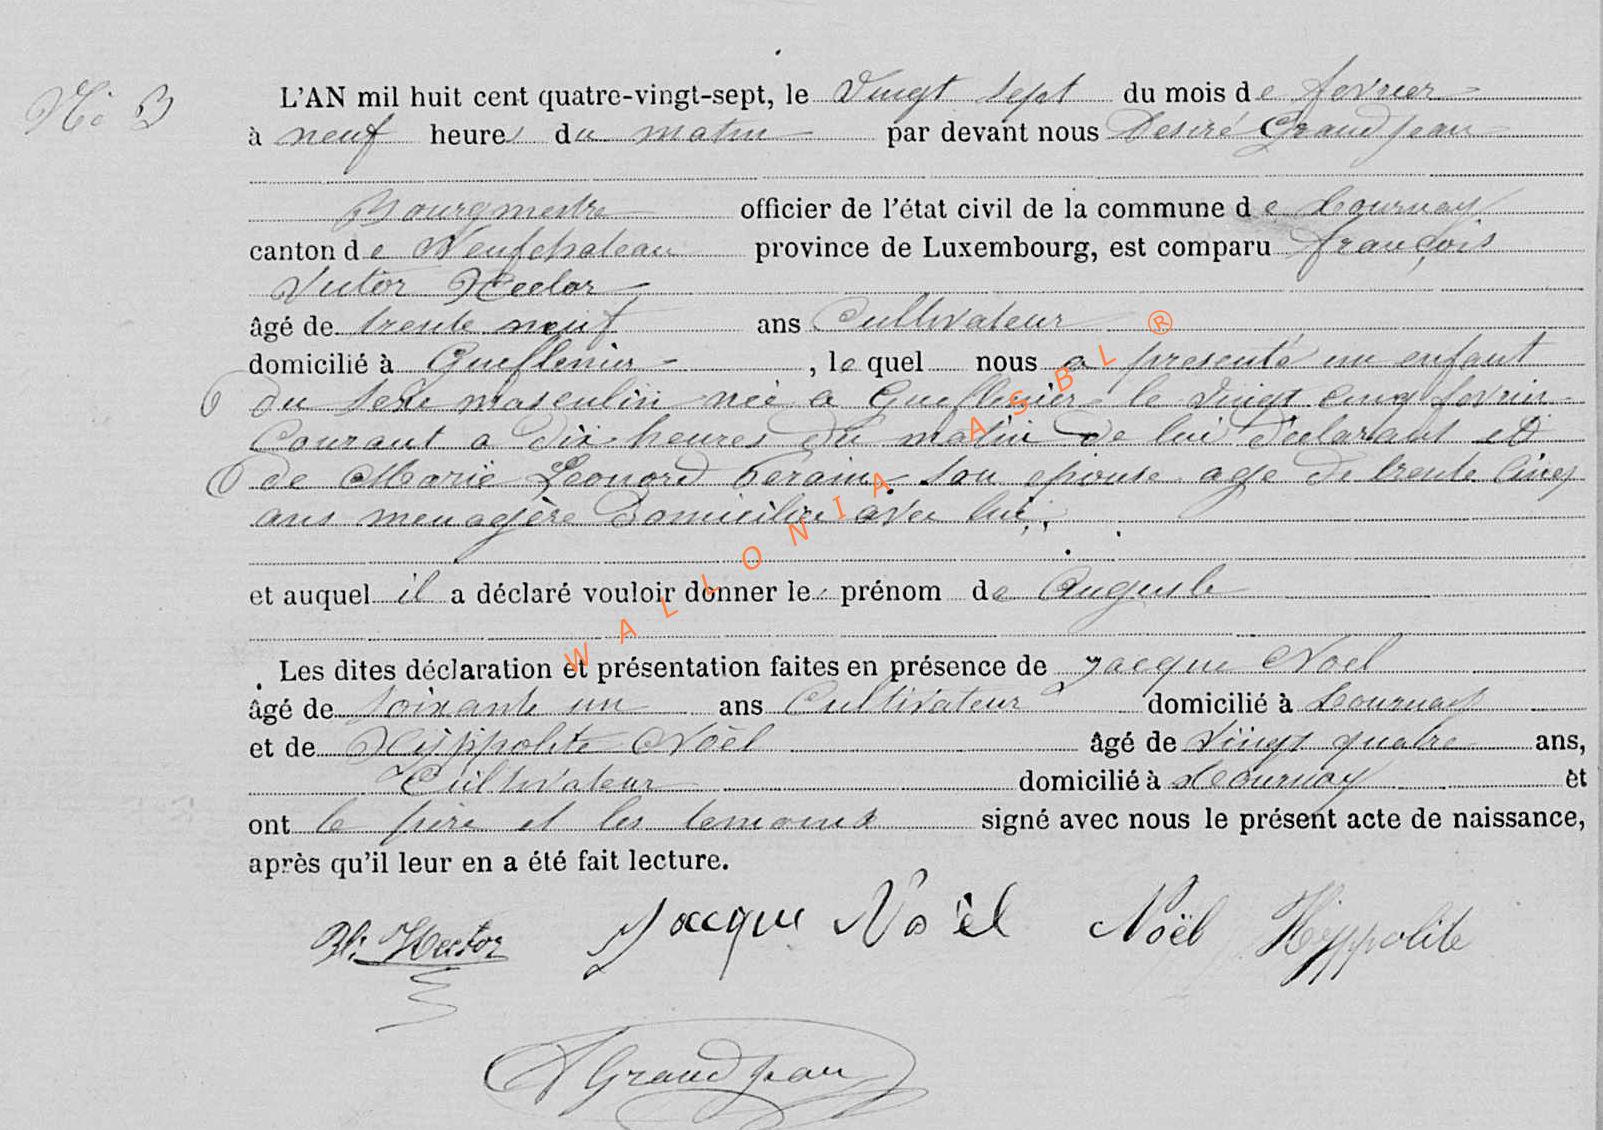 No 3
L'AN mil huit cent quatre-vingt-sept, le Vingt sept du mois de fevrier
à neuf heures du matin par devant nous Desiré Grandjean
Bourgmestre officier de l'état civil de la commune de Tournay
canton de Neufchateau province de Luxembourg, est comparu françois
Victor Hector
âgé de trente neuf ans Cultivateur
domicilié à Gueflenier , le quel nous a presenté un enfant
du sexe masculin née a Gueflenier le vingt cinq fevrier
Courant a dix heures du matin de lui déclarant et
de Marie Leonord son epouse age de trente cinq
ans menagère Domicilier avec lui,
et auquel il a déclaré vouloir donner le prénom de Auguste
Les dites déclaration et présentation faites en présence de Jacque Noel
âgé de soixante un ans Cultivateur domicilié à Tournay
et de Hippolite Noël âgé de vingt quatre ans,
Cultivateur domicilié à Tournay et
ont le père et les temoins signé avec nous le présent acte de naissance,
après qu'il leur en a été fait lecture.
Hector Jacque Noël Noël Hyppolite
Grandjean
WALLONIA ASBL ®